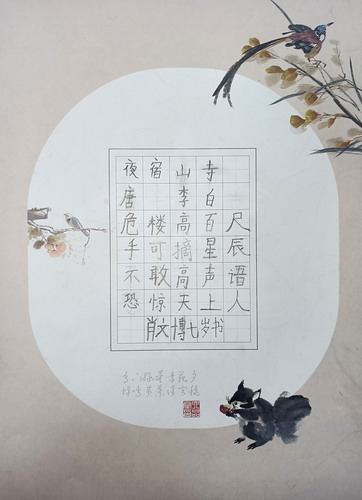 夜宿山寺
唐李白
危楼高百尺
手可摘星辰
不敢高声语
恐惊天上人
肖文博七岁书